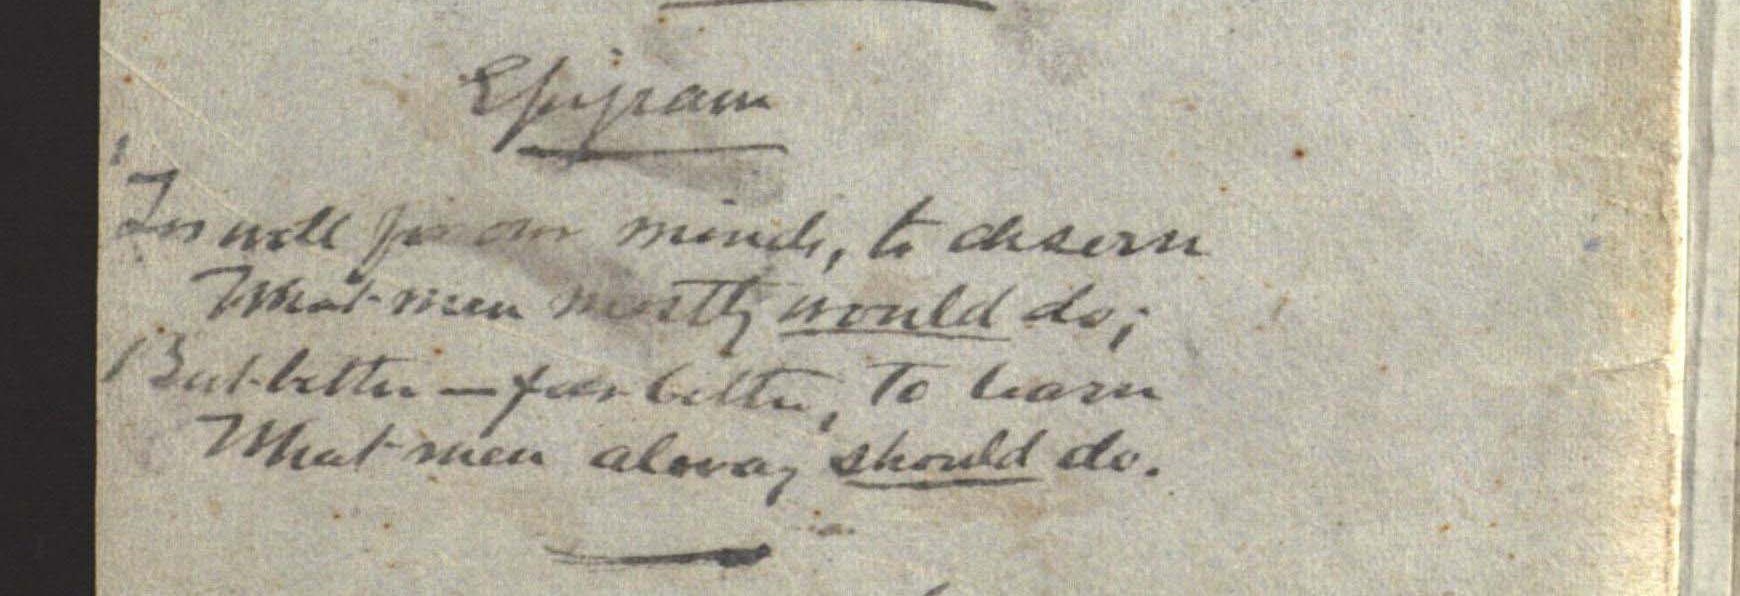 Epigram
'Tis well for our minds, to discern
What men mostly would do;
But better — far better, to learn
What men alway should do.